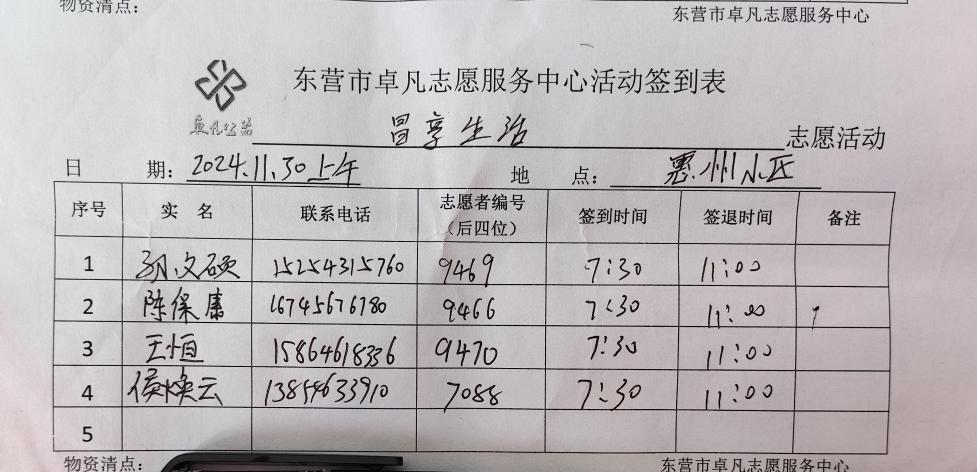 物资清点：
东营市卓凡志愿服务中心
东营市卓凡志愿服务中心活动签到表
卓凡公益
冒享生活 志愿活动
日 期：2024.11.30上午 地 点：惠州小区
序号 实 名 联系电话 志愿者编号（后四位） 签到时间 签退时间 备注
1 孙文硕 15254315760 9469 7:30 11:00
2 陈保康 16745676780 9466 7:30 11:00
3 王恒 15864618336 9470 7:30 11:00
4 侯焕云 13854633910 7088 7:30 11:00
5
物资清点：
东营市卓凡志愿服务中心